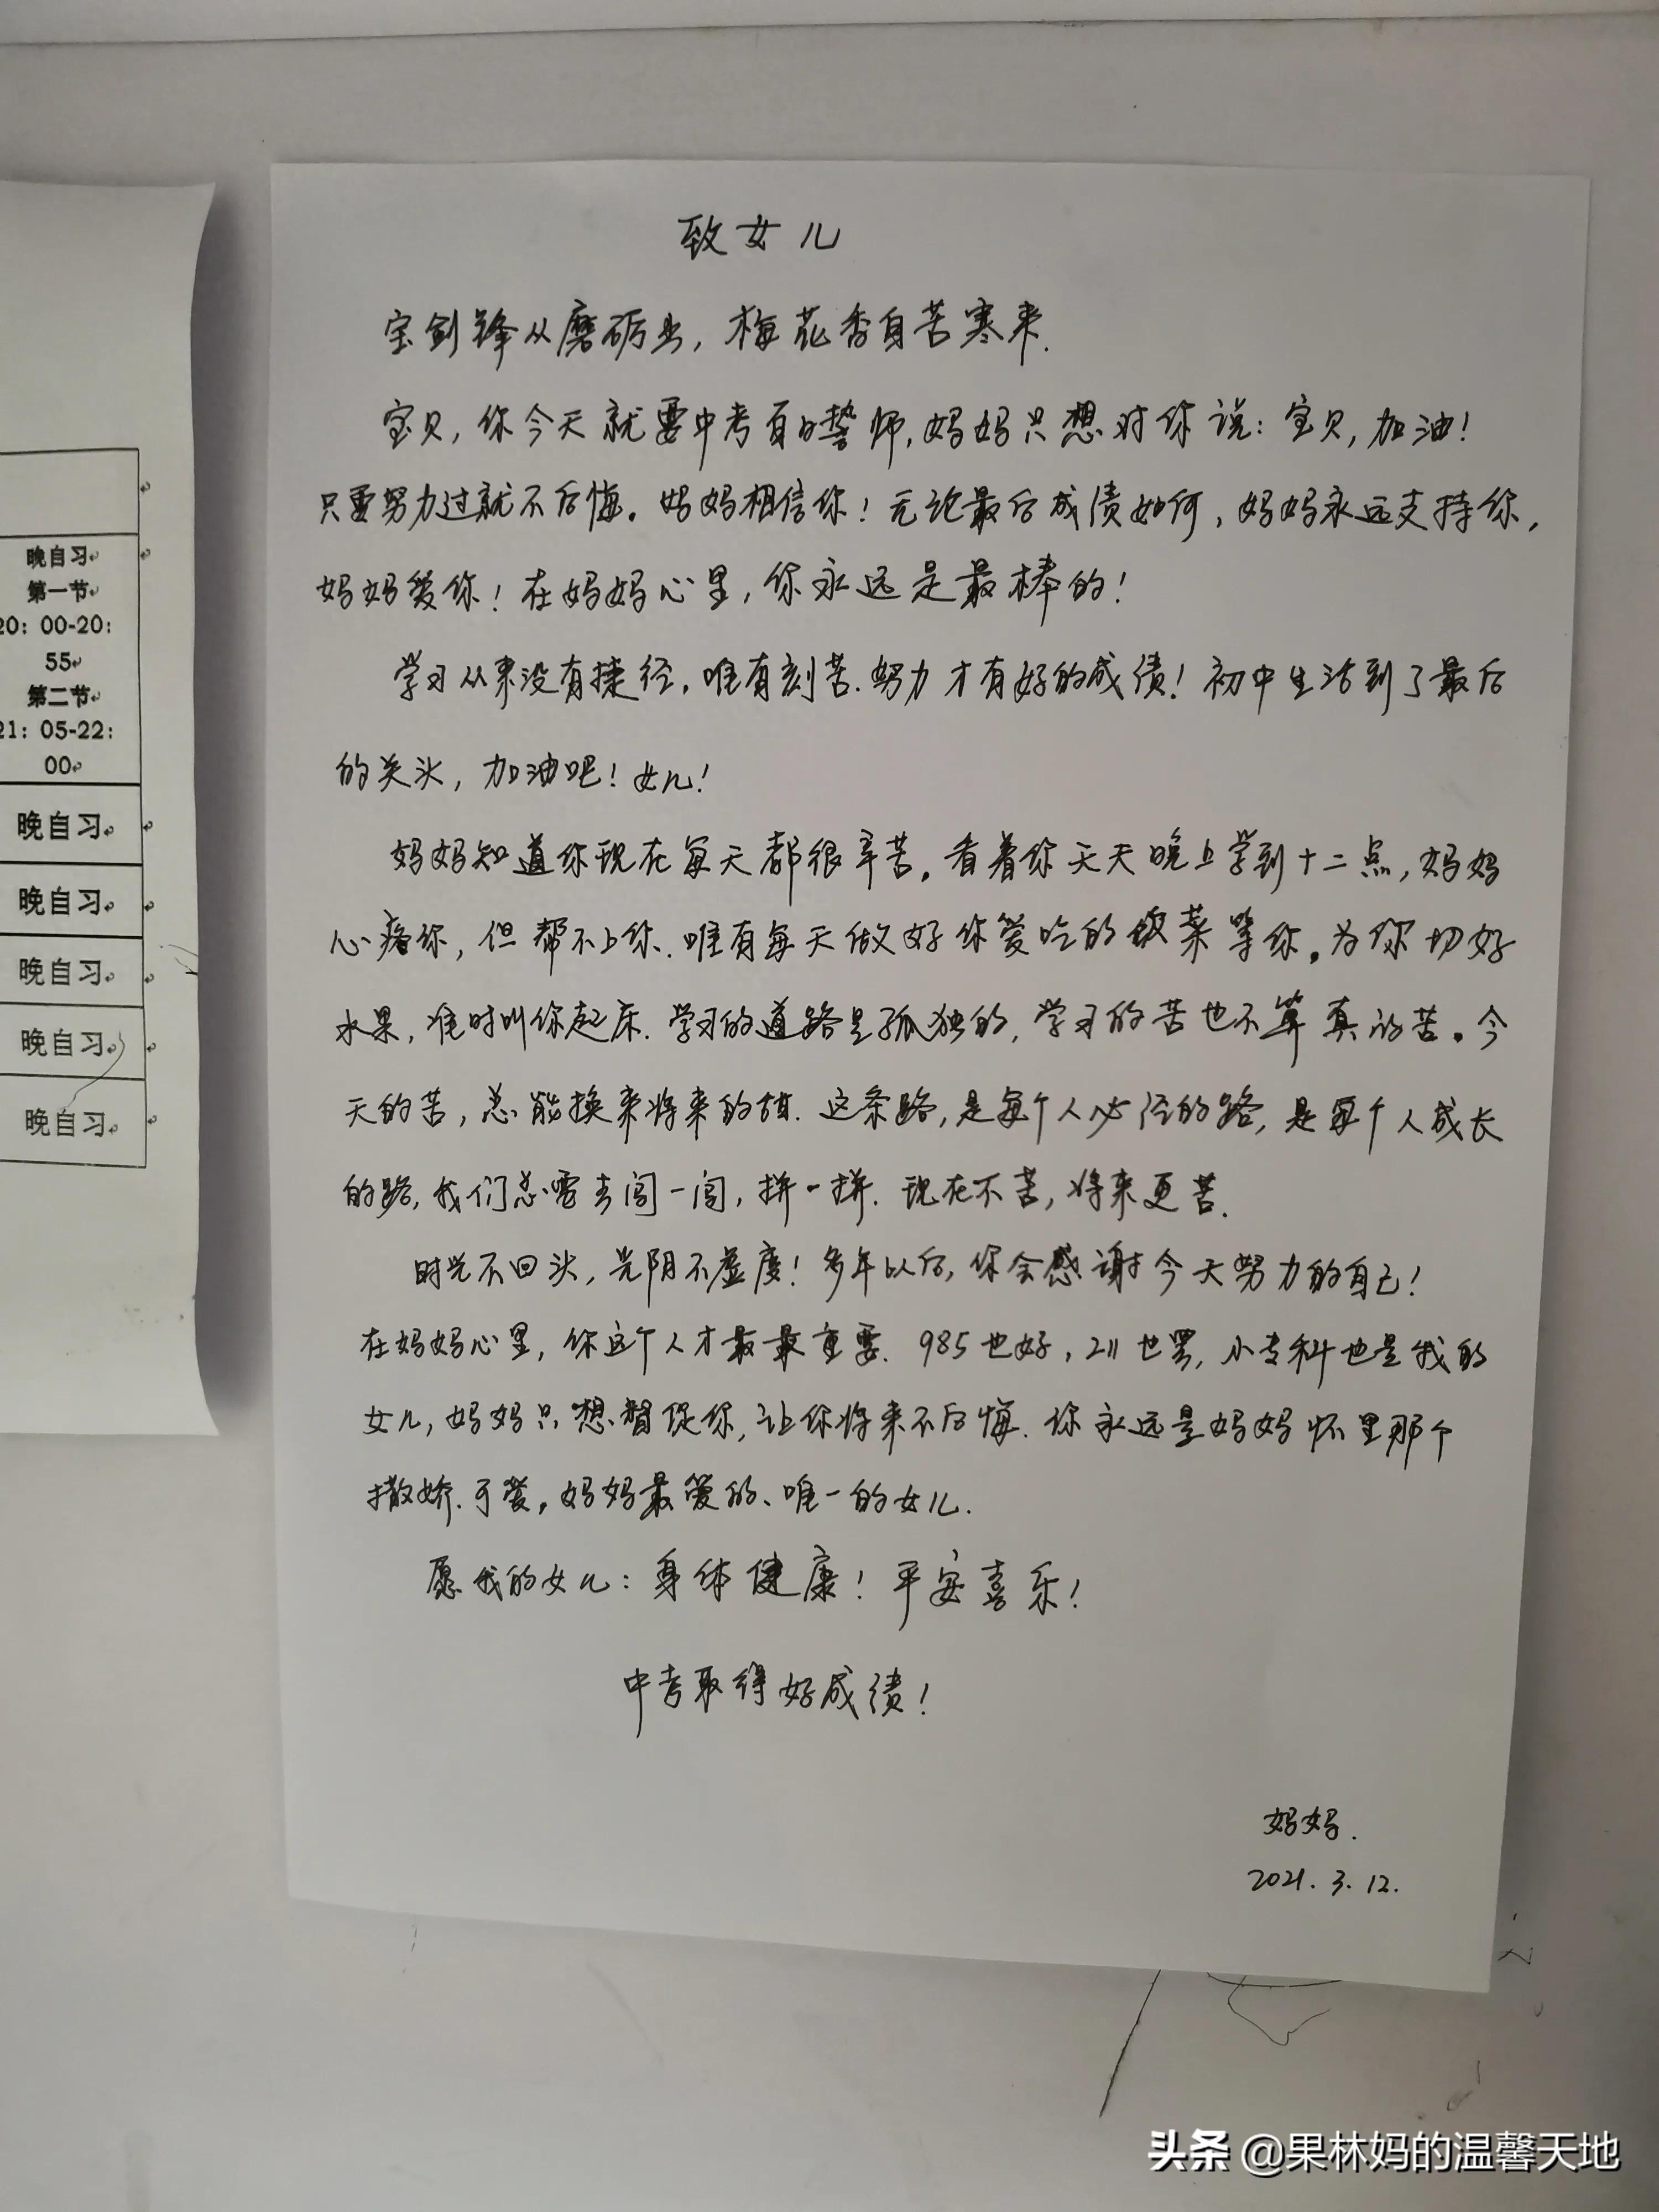 晚自习
第一节
20：00-20：
55
第二节
21：05-22：
00
晚自习
晚自习
晚自习
晚自习
晚自习
致女儿
宝剑锋从磨砺出，梅花香自苦寒来.
宝贝，你今天就要中考百日誓师，妈妈只想对你说：宝贝，加油！
只要努力过就不后悔。妈妈相信你！无论最后成绩如何，妈妈永远支持你，
妈妈爱你！在妈妈心里，你永远是最棒的！
学习从来没有捷径，唯有刻苦.努力才有好的成绩！初中生活到了最后
的关头，加油吧！女儿！
妈妈知道你现在每天都很辛苦。看着你天天晚上学到十二点，妈妈
心疼你，但帮不上你、唯有每天做好你爱吃的饭菜等你。为你切好
水果，准时叫你起床.学习的道路是孤独的，学习的苦也不算真的苦。今
天的苦，总能换来将来的甜.这条路，是每个人必经的路，是每个人成长
的路，我们总要去闯一闯，拼一拼.现在不苦，将来更苦.
时光不回头，光阴不虚度！多年以后，你会感谢今天努力的自己！
在妈妈心里，你这个人才最最重要.985也好，211也罢，小专科也是我的
女儿，妈妈只想督促你，让你将来不后悔.你永远是妈妈怀里那个
撒娇.可爱。妈妈最爱的、唯一的女儿.
愿我的女儿：身体健康！平安喜乐！
中考取得好成绩！
妈妈.
2021.3.12.
头条 @果林妈的温馨天地